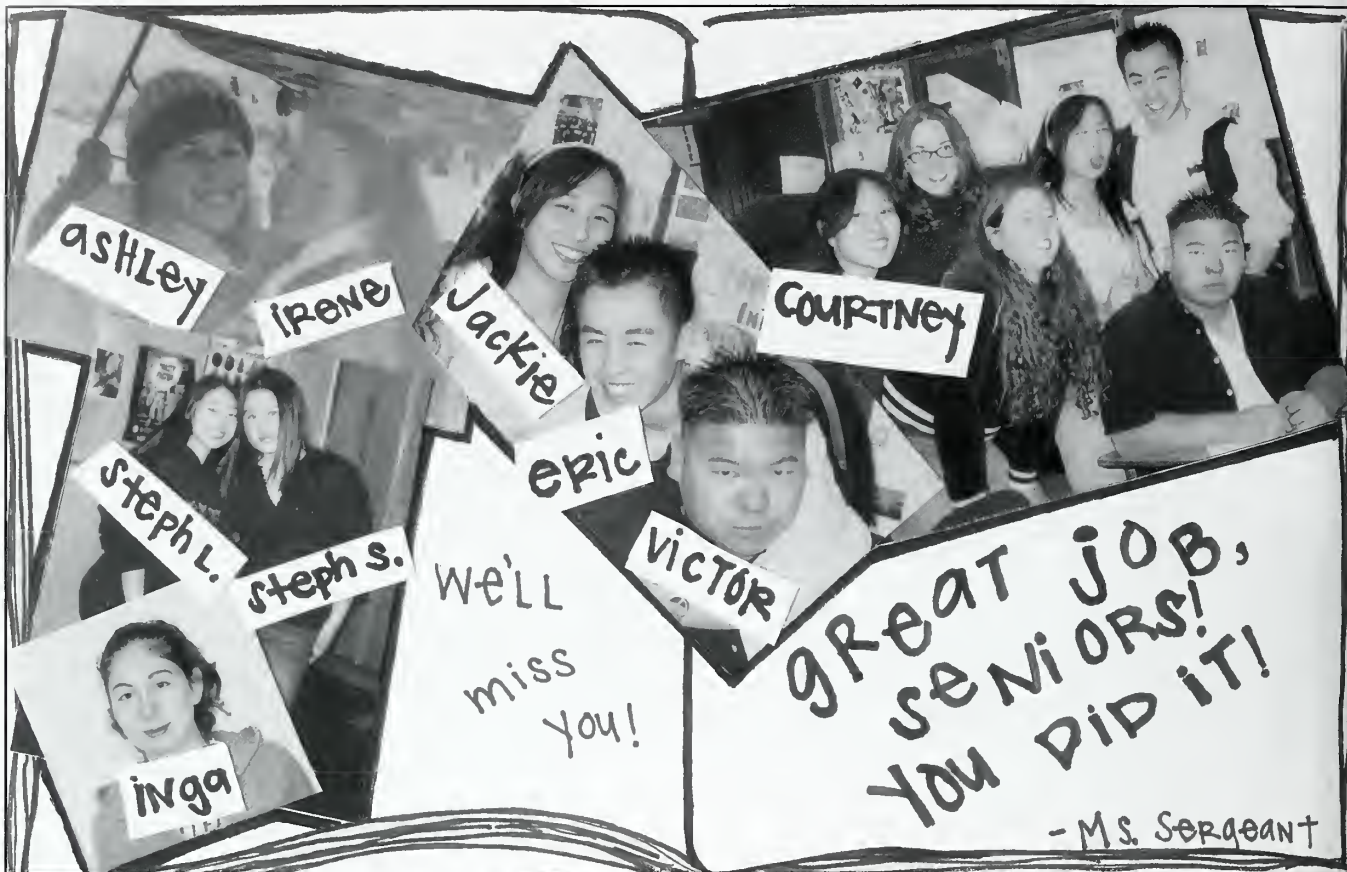 asHLey
iRene
Jackie
COURTNey
eRic
Steph L.
Steph S.
VICTOR
iNga
we'LL
miss
you!
gReaT JOB,
seNiORS!
You DiD iT!
- Ms. SeRgeant